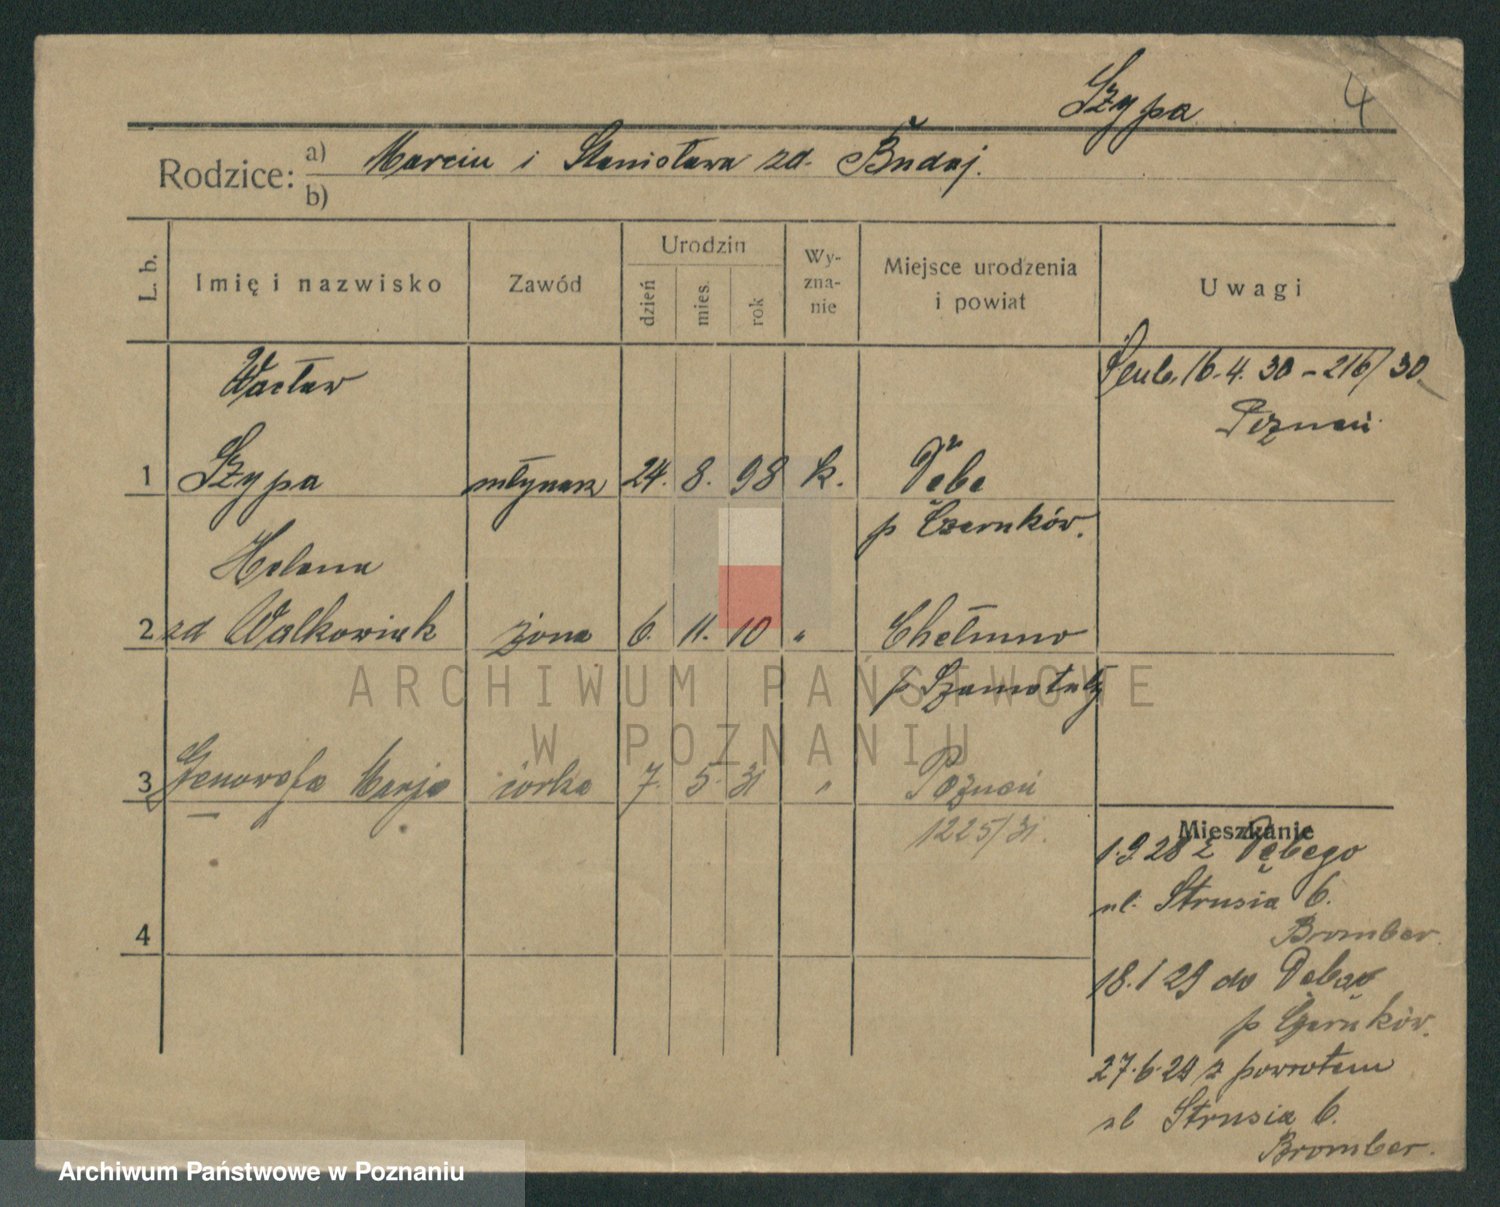 Szypa 4
Rodzice: a) Marcin i Stanisława zd. Budaj.
b)
L. b. Imię i nazwisko Zawód Urodzin dzień mies. rok Wy-zna-nie Miejsce urodzenia i powiat Uwagi
Wacław Ślub. 16.4.30 - 216/30
Poznań
1 Szypa młynarz 24. 8. 98 k. Dębe
p Czarnków.
Helena
2 zd Walkowiak żona 6. 11. 10 " Chełmno
p Szamotuły
ARCHIWUM PAŃSTWOWE
W POZNANIU
3 Genowefa Marja córka 7. 5. 31 " Poznań
1225/31.
Mieszkanie
1.9.28 z Dębego
ul. Strusia 6.
Bromber.
4
18.1 29 do Dębego
p Czarnków.
27.6.29 z powrotem
ul Strusia 6.
Bromber.
Archiwum Państwowe w Poznaniu